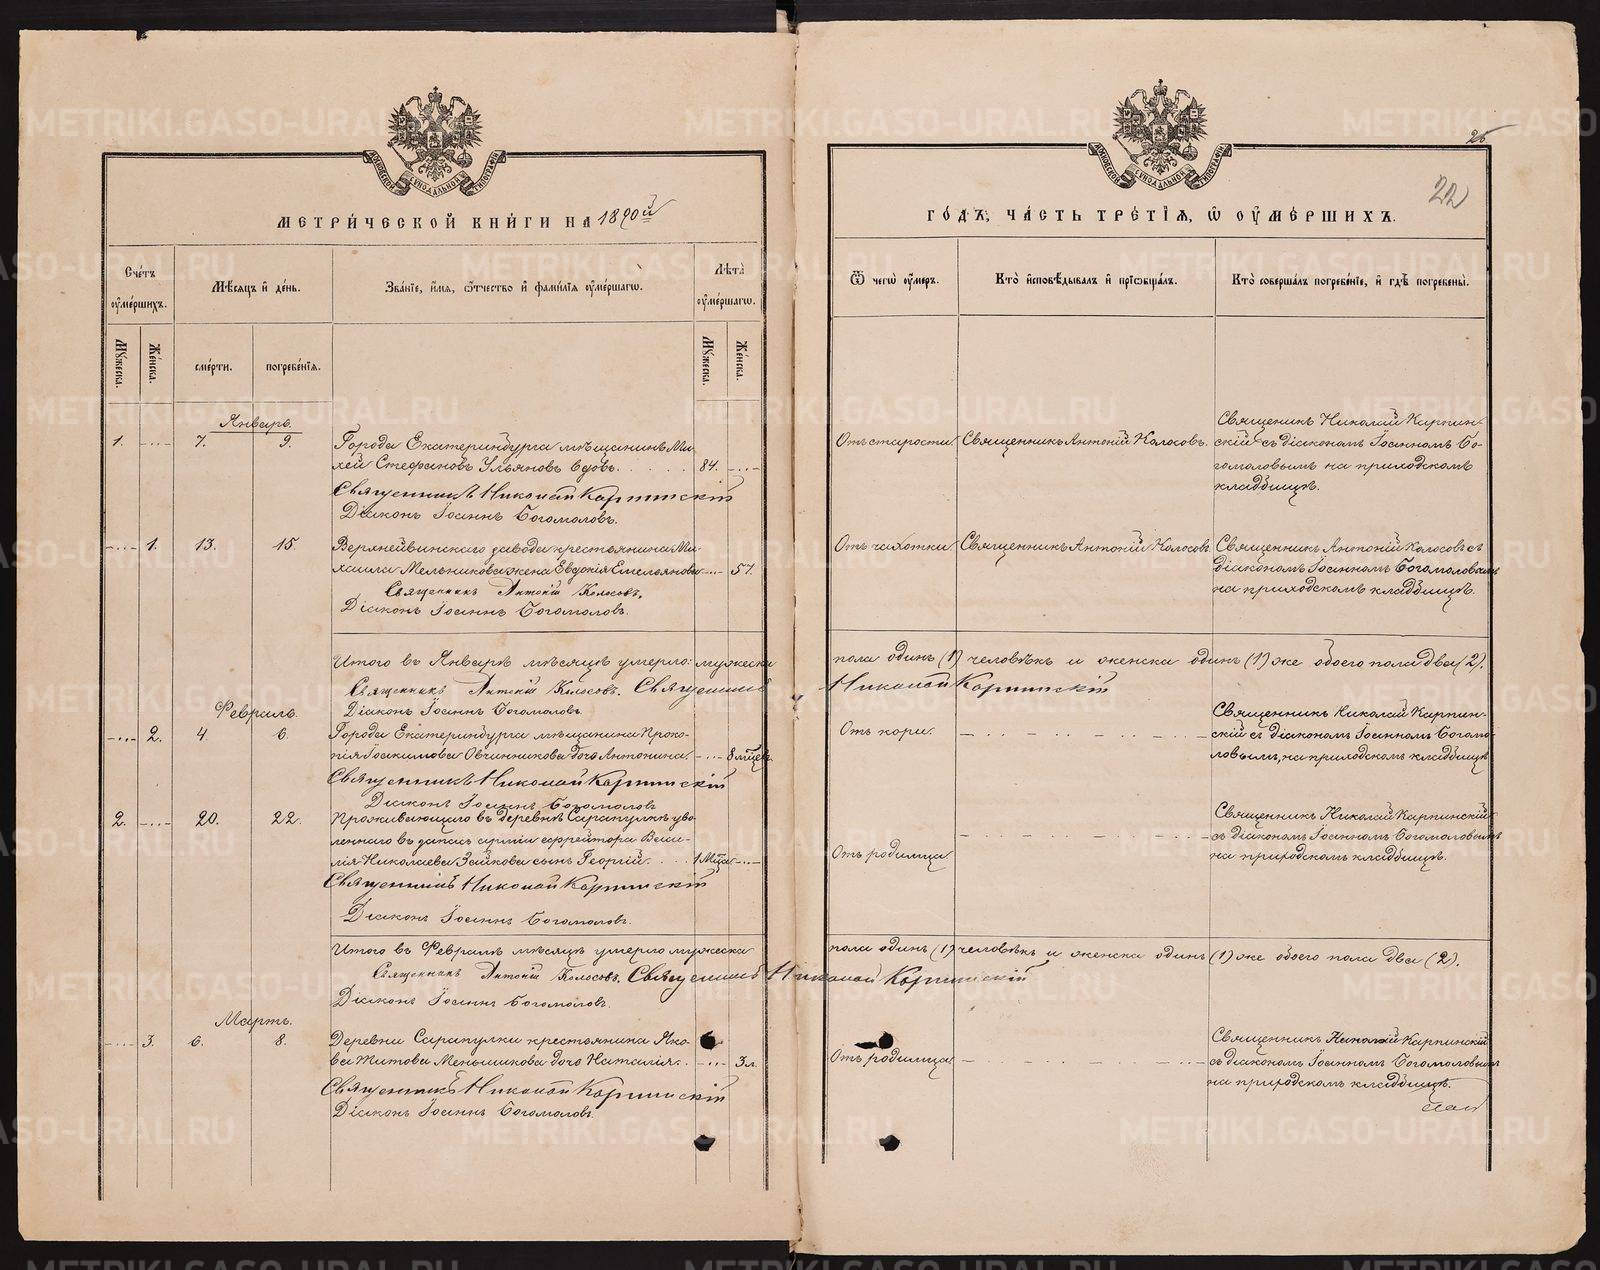 МЕТРИ́ЧЕСКОЙ КНИ́ГИ НА 1890й
Сче́тъ оумéршихъ.
Мѣ́сяцъ и де́нь.
Зва́нїе, и́мя, ѻ҆́тчество и фамѝлїя оумéршагѡ.
Лѣ́та оумéршагѡ.
Мꙋ́жеска.
Же́нска.
сме́рти.
погребе́нїѧ.
Мꙋ́жеска.
Же́нска.
Январь.
1.
7.
9.
Города Екатеринбурга мѣщанинъ Ми-
хей Стефановъ Ульяновъ вдовъ.
84.
Священникъ Николай Карпинскій
Діаконъ Іоаннъ Богомоловъ.
1.
13.
15.
Верхнейвинскаго завода крестьянина Ми-
хаила Мельникова жена Евдокія Емельянова
57.
Священникъ Антоній Колосовъ.
Діаконъ Іоаннъ Богомоловъ.
Итого въ Январѣ мѣсяцѣ умерло: мужеска
Священникъ Антоній Колосовъ. Священникъ
Діаконъ Іоаннъ Богомоловъ.
Февраль.
2.
4.
6.
Города Екатеринбурга мѣщанина Проко-
пія Іоакимова Овчинникова дочь Антонина.
8 мцев
Священникъ Николай Карпинскій
Діаконъ Іоаннъ Богомоловъ
2.
20.
22.
Проживающаго въ деревнѣ Сарапулкѣ уво-
леннаго въ запасъ арміи ефрейтора Васи-
лія Николаева Зайкова сынъ Георгій.
1 Мца
Священникъ Николай Карпинскій
Діаконъ Іоаннъ Богомоловъ.
Итого въ Февралѣ мѣсяцѣ умерло мужеска
Священникъ Антоній Колосовъ. Священникъ Николай Карпинскій
Діаконъ Іоаннъ Богомоловъ.
Мартъ.
3.
6.
8.
Деревни Сарапулки крестьянина Яко-
ва Титова Меньшикова дочь Наталія.
3 л.
Священникъ Николай Карпинскій
Діаконъ Іоаннъ Богомоловъ.
22
ГО́ДЪ, ЧА́СТЬ ТРЕ́ТЇѦ, Ѡ ОУМЕ́РШИХЪ.
Ѿ чегѡ̀ оу́меръ.
Кто̀ и҆сповѣ́дывалъ и҆ прїѡбща́лъ.
Кто̀ соверша́лъ погребе́нїе, и҆ гдѣ̀ погребены̀.
Отъ старости
Священникъ Антоній Колосовъ.
Священникъ Николай Карпин-
скій съ діакономъ Іоанномъ Бо-
гомоловымъ на приходскомъ
кладбищѣ.
Отъ чахотки
Священникъ Антоній Колосовъ
Священникъ Антоній Колосовъ съ
діакономъ Іоанномъ Богомоловымъ
на приходскомъ кладбищѣ.
пола одинъ (1) человѣкъ и женска одинъ (1) же обоего пола два (2).
Николай Карпинскій
Отъ кори.
Священникъ Николай Карпин-
скій съ діакономъ Іоанномъ Богомо-
ловымъ, на приходскомъ кладбищѣ
Отъ родимца
Священникъ Николай Карпинскій
съ діакономъ Іоанномъ Богомоловымъ
на приходскомъ кладбищѣ.
пола одинъ (1) человѣкъ и женска одинъ (1) же обоего пола два (2).
Отъ родимца
Священникъ Николай Карпинскій
съ діакономъ Іоанномъ Богомоловымъ
на приходскомъ кладбищѣ.
METRIKI.GASO-URAL.RU